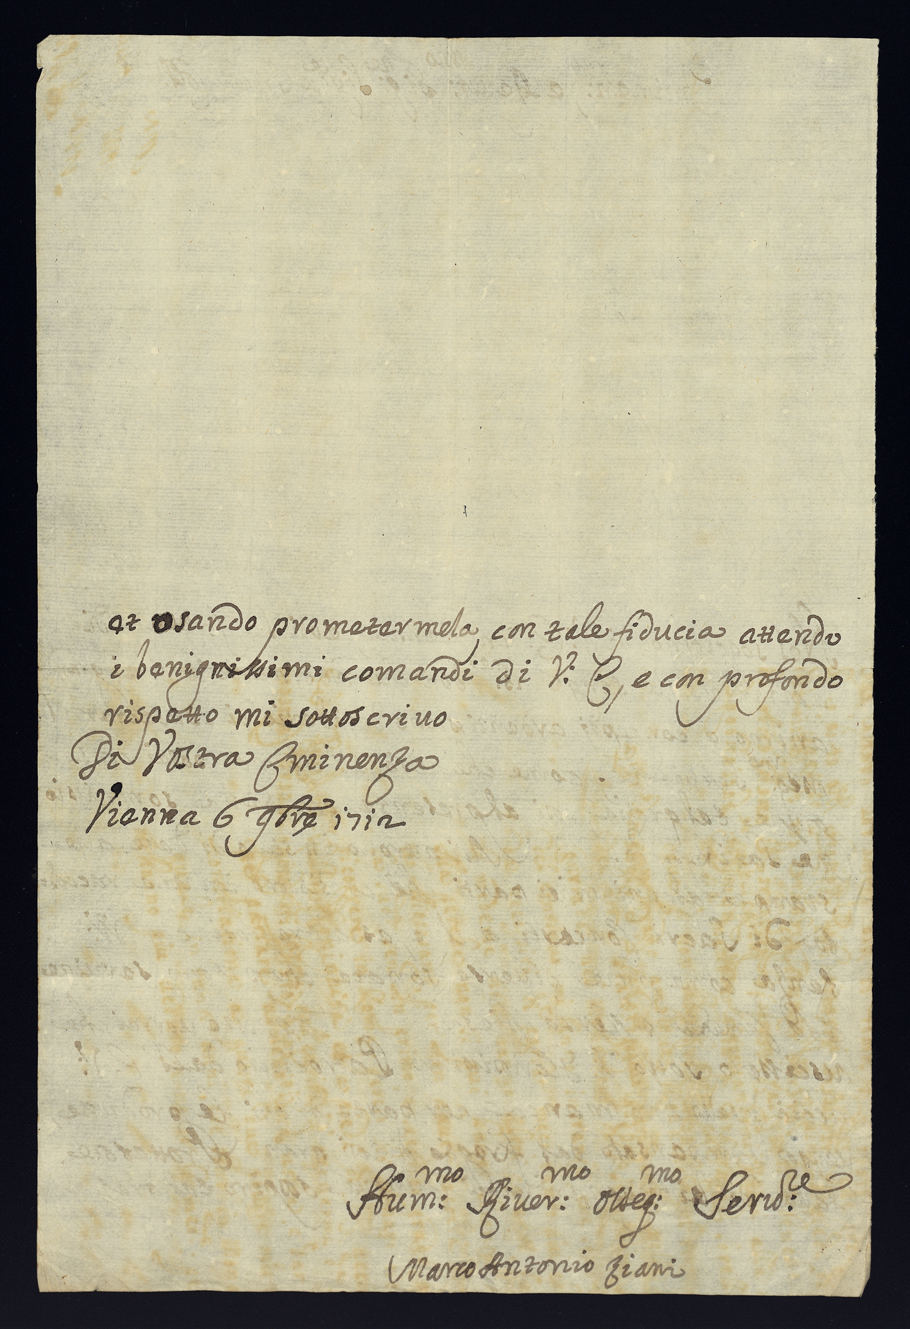 et osando prometermela, con tale fiducia attendo
i benignissimi comandi di V.ª E, e con profondo
rispetto mi sottoscriuo
Di Vostra Eminenza
Vienna 6 9bre 1712
Hum:mo Riuer:mo Osseq:mo Seru:re
Marco Antonio Ziani